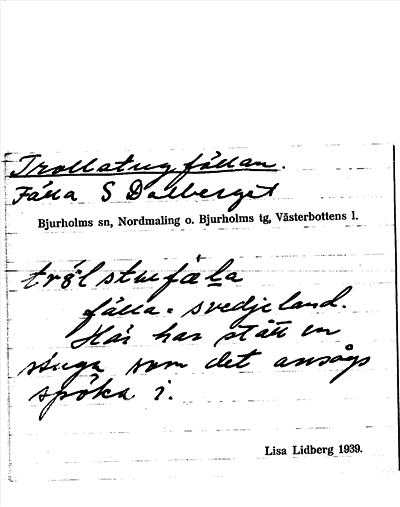 Trollstugfällan.
Fälla S Dalberget
Bjurholms sn, Nordmaling o. Bjurholms tg, Västerbottens l.
fälla = svedjeland.
Här har stått en
stuga som det ansågs
spöka i.
Lisa Lidberg 1939.